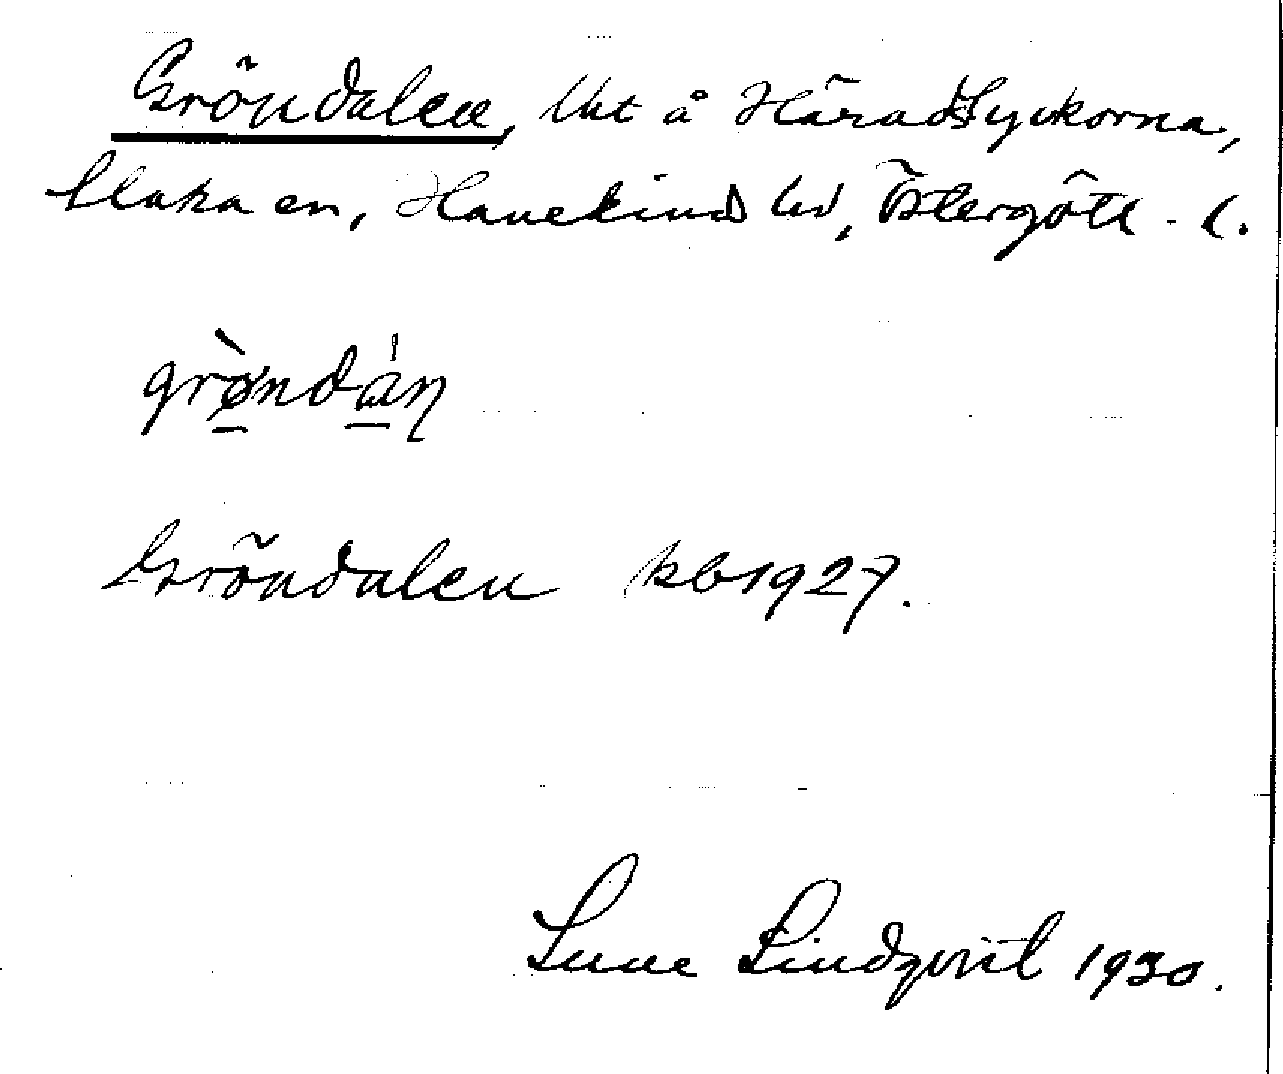 Gröndalen, Uht å Häradslyckorna,
Slaka sn, Hanekinds hd, Östergötl. l.
grø̀ndán
Gröndalen kb 1927.
Sune Lindqvist 1930.